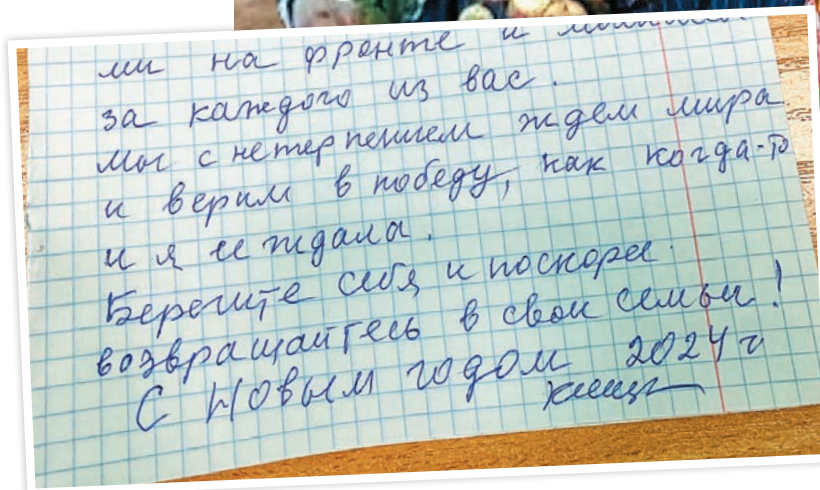 ми на фронте и
за каждого из вас.
мы с нетерпением ждем мира
и верим в победу, как когда-то
и я её ждала.
Берегите себя и поскорее
возвращайтесь в свои семьи!
С Новым годом 2024 г